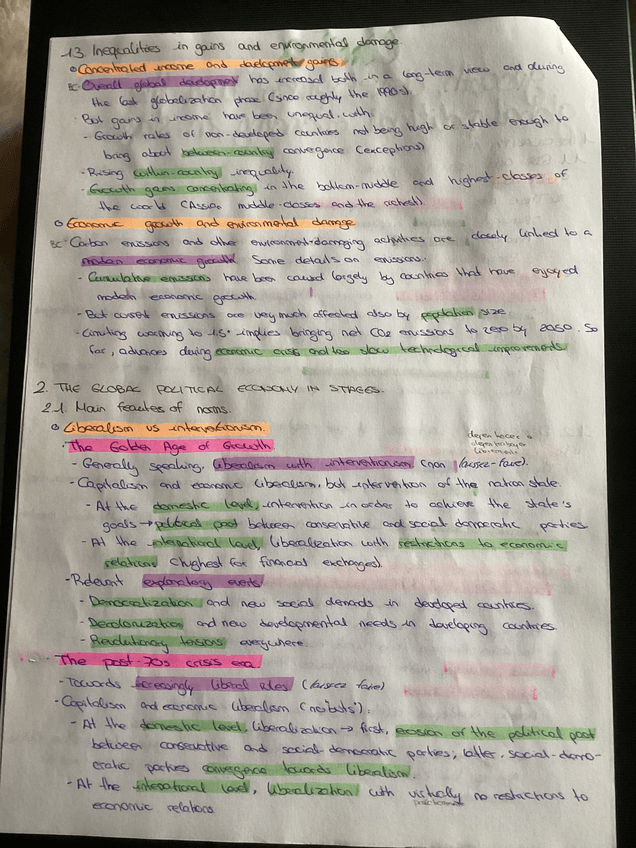 1.3. Inequalities in gains and environmental damage.
Concentrated income and development gains
BC: Overall global development has increased both in a long-term view and during
the last globalization phase (since roughly the 1990s).
- But gains in income have been unequal, with:
- Growth rates of non-developed countries not being high or stable enough to
bring about between-country convergence (exceptions)
- Rising within-country inequality.
- Growth gains concentrating in the bottom-middle and highest-classes of
the world (Asian middle-classes and the richest).
Economic growth and environmental damage
BC: Carbon emissions and other environment-damaging activities are closely linked to a
modern economic growth. Some details on emissions:
- Cumulative emissions have been caused largely by countries that have enjoyed
modern economic growth.
- But current emissions are very much affected also by population size
- Limiting warming to 1.5° implies bringing net CO2 emissions to zero by 2050. So
far, advances during economic crisis and too slow technological improvements
2. THE GLOBAL POLITICAL ECONOMY IN STAGES.
2.1. Main features of norms.
Liberalism vs interventionism.
dejen hacer o
libremente
· The Golden Age of Growth
- Generally speaking, liberalism with interventionism (non laissez-faire).
- Capitalism and economic liberalism, but intervention of the nation state.
- At the domestic level, intervention in order to achieve the state's
goals → political pact between conservative and social democratic parties
- At the international level, liberalization with restrictions to economic
relations (highest for financial exchanges).
- Relevant explanatory events
- Democratization and new social demands in developed countries.
- Decolonization and new developmental needs in developing countries
- Revolutionary tensions everywhere.
· The post-70s crisis era
- Towards increasingly liberal rules (laissez faire)
- Capitalism and economic liberalism (no 'buts'):
- At the domestic level, liberalization → first, erosion of the political pact
between conservative and social-democratic parties; latter, social-demo-
cratic parties convergence towards liberalism.
- At the international level, liberalization with virtually no restrictions to
economic relations